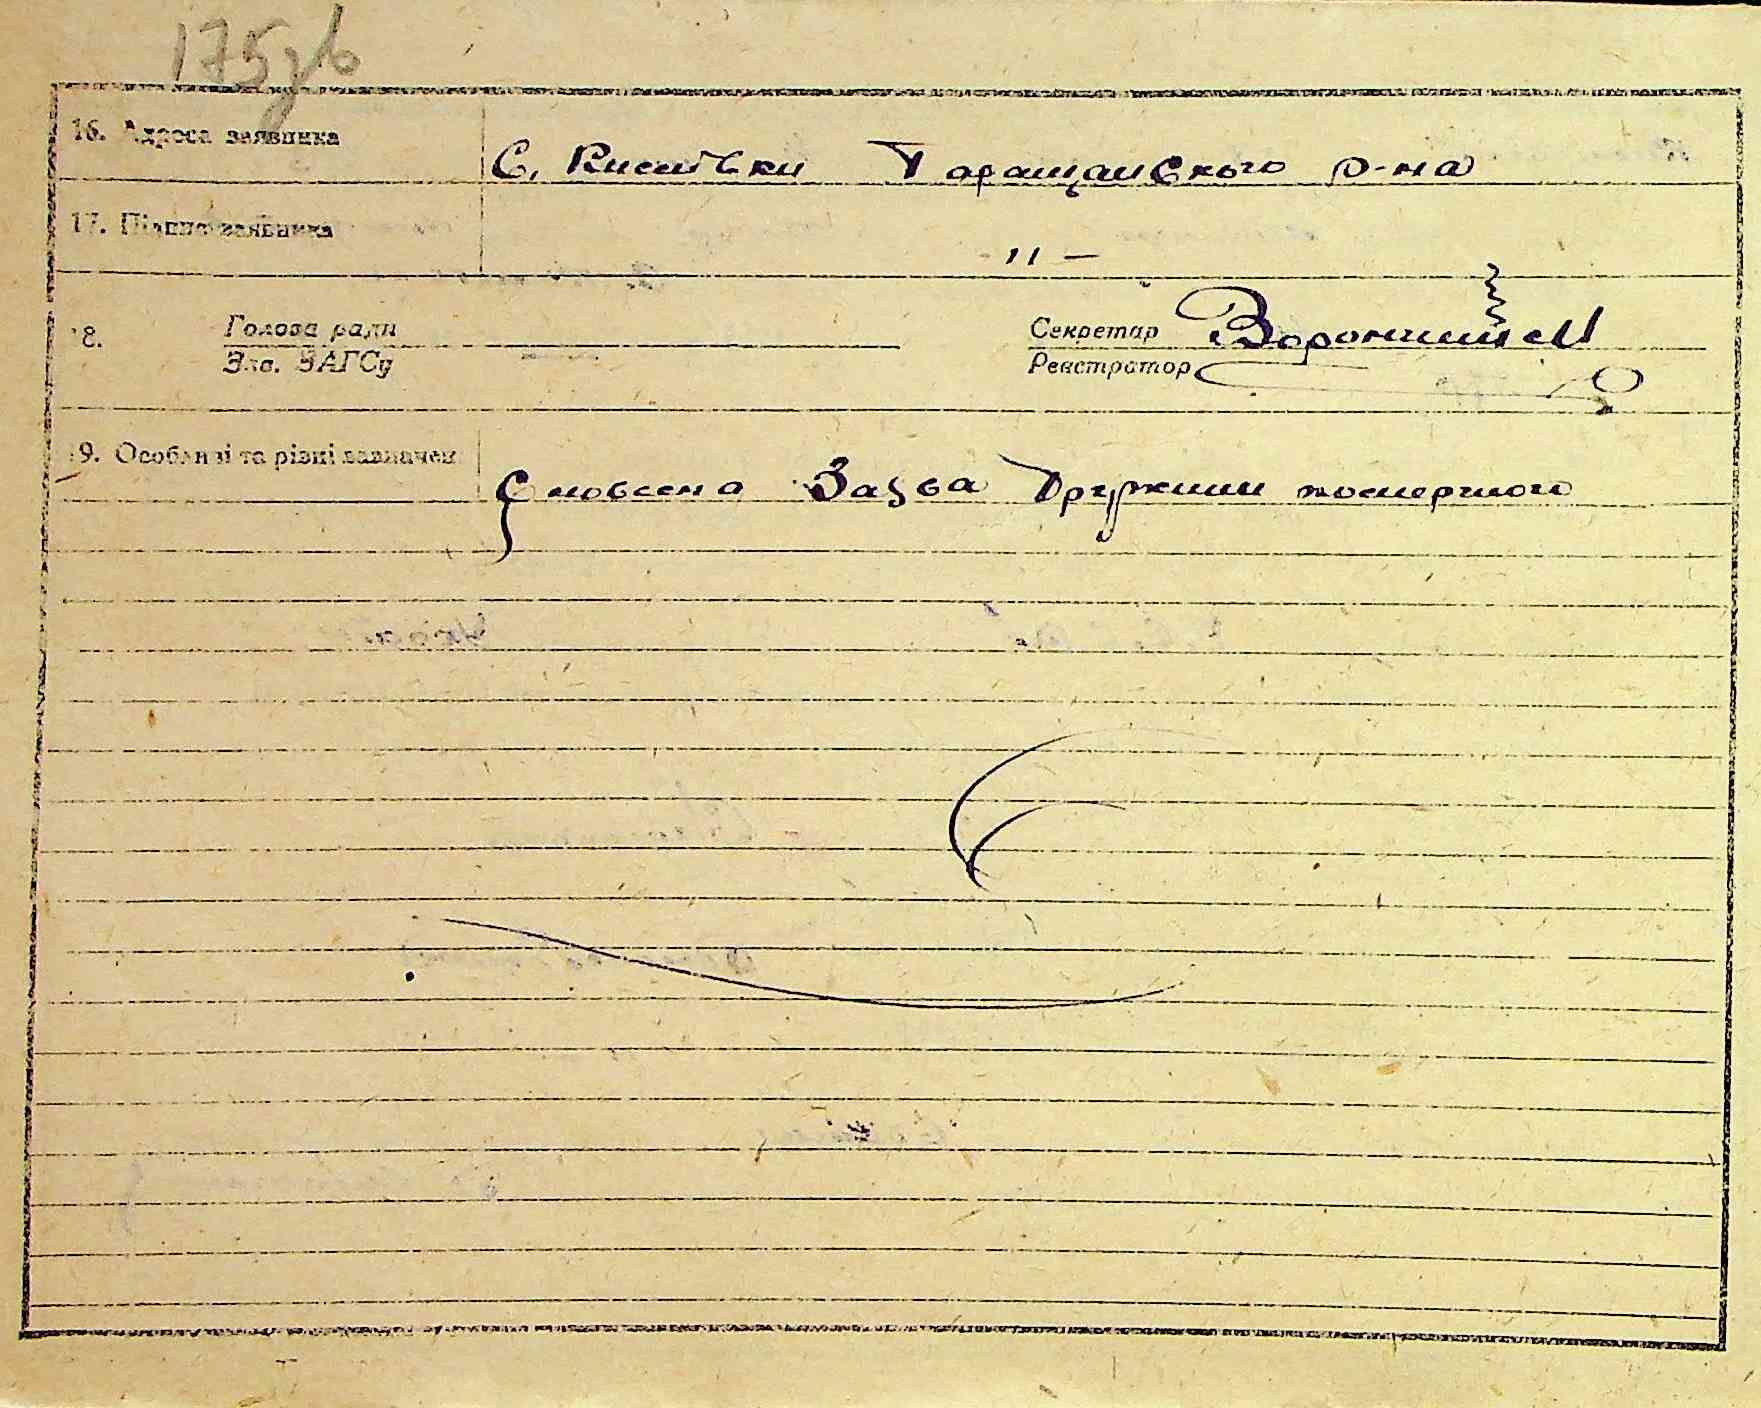 175зв
16. Адреса заявника
С. Кислівки Таращанського р-на
17. Підпис заявника
- " -
18. Голова ради
Зав. ЗАГСу
Секретар
Реєстратор
19. Особливі та різні зазначен.
Словесна Заява Дружини померлого